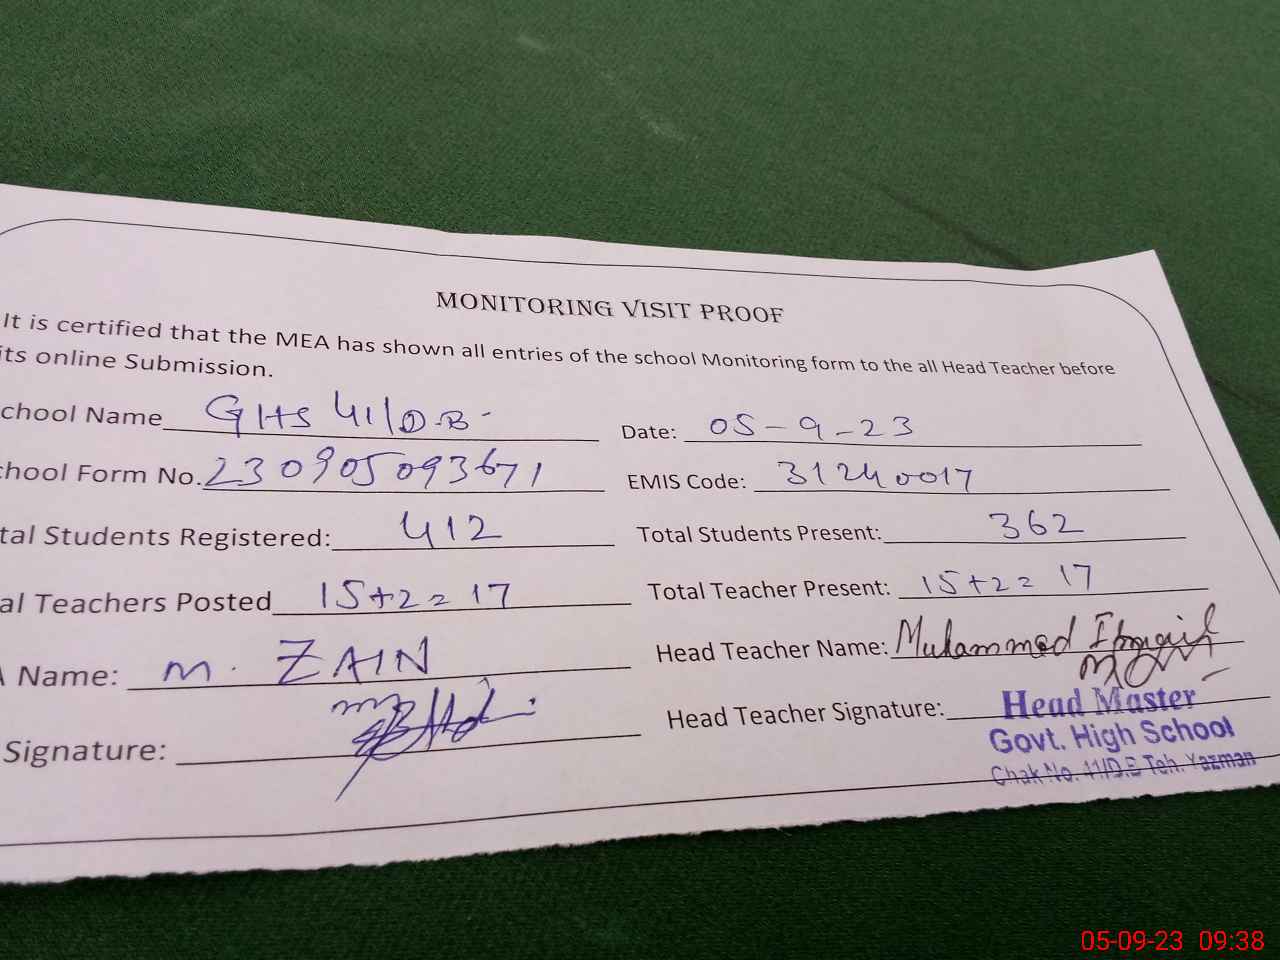 MONITORING VISIT PROOF
It is certified that the MEA has shown all entries of the school Monitoring form to the all Head Teacher before
its online Submission.
chool Name GHS 41/D.B Date: 05-9-23
chool Form No. 230905093671 EMIS Code: 31240017
tal Students Registered: 412 Total Students Present: 362
al Teachers Posted 15+2=17 Total Teacher Present: 15+2=17
A Name: M. ZAIN Head Teacher Name: Muhammad Ismail
Signature: Head Teacher Signature:
Head Master
Govt. High School
Chak No. 41/D.B Teh. Yazman
05-09-23 09:38